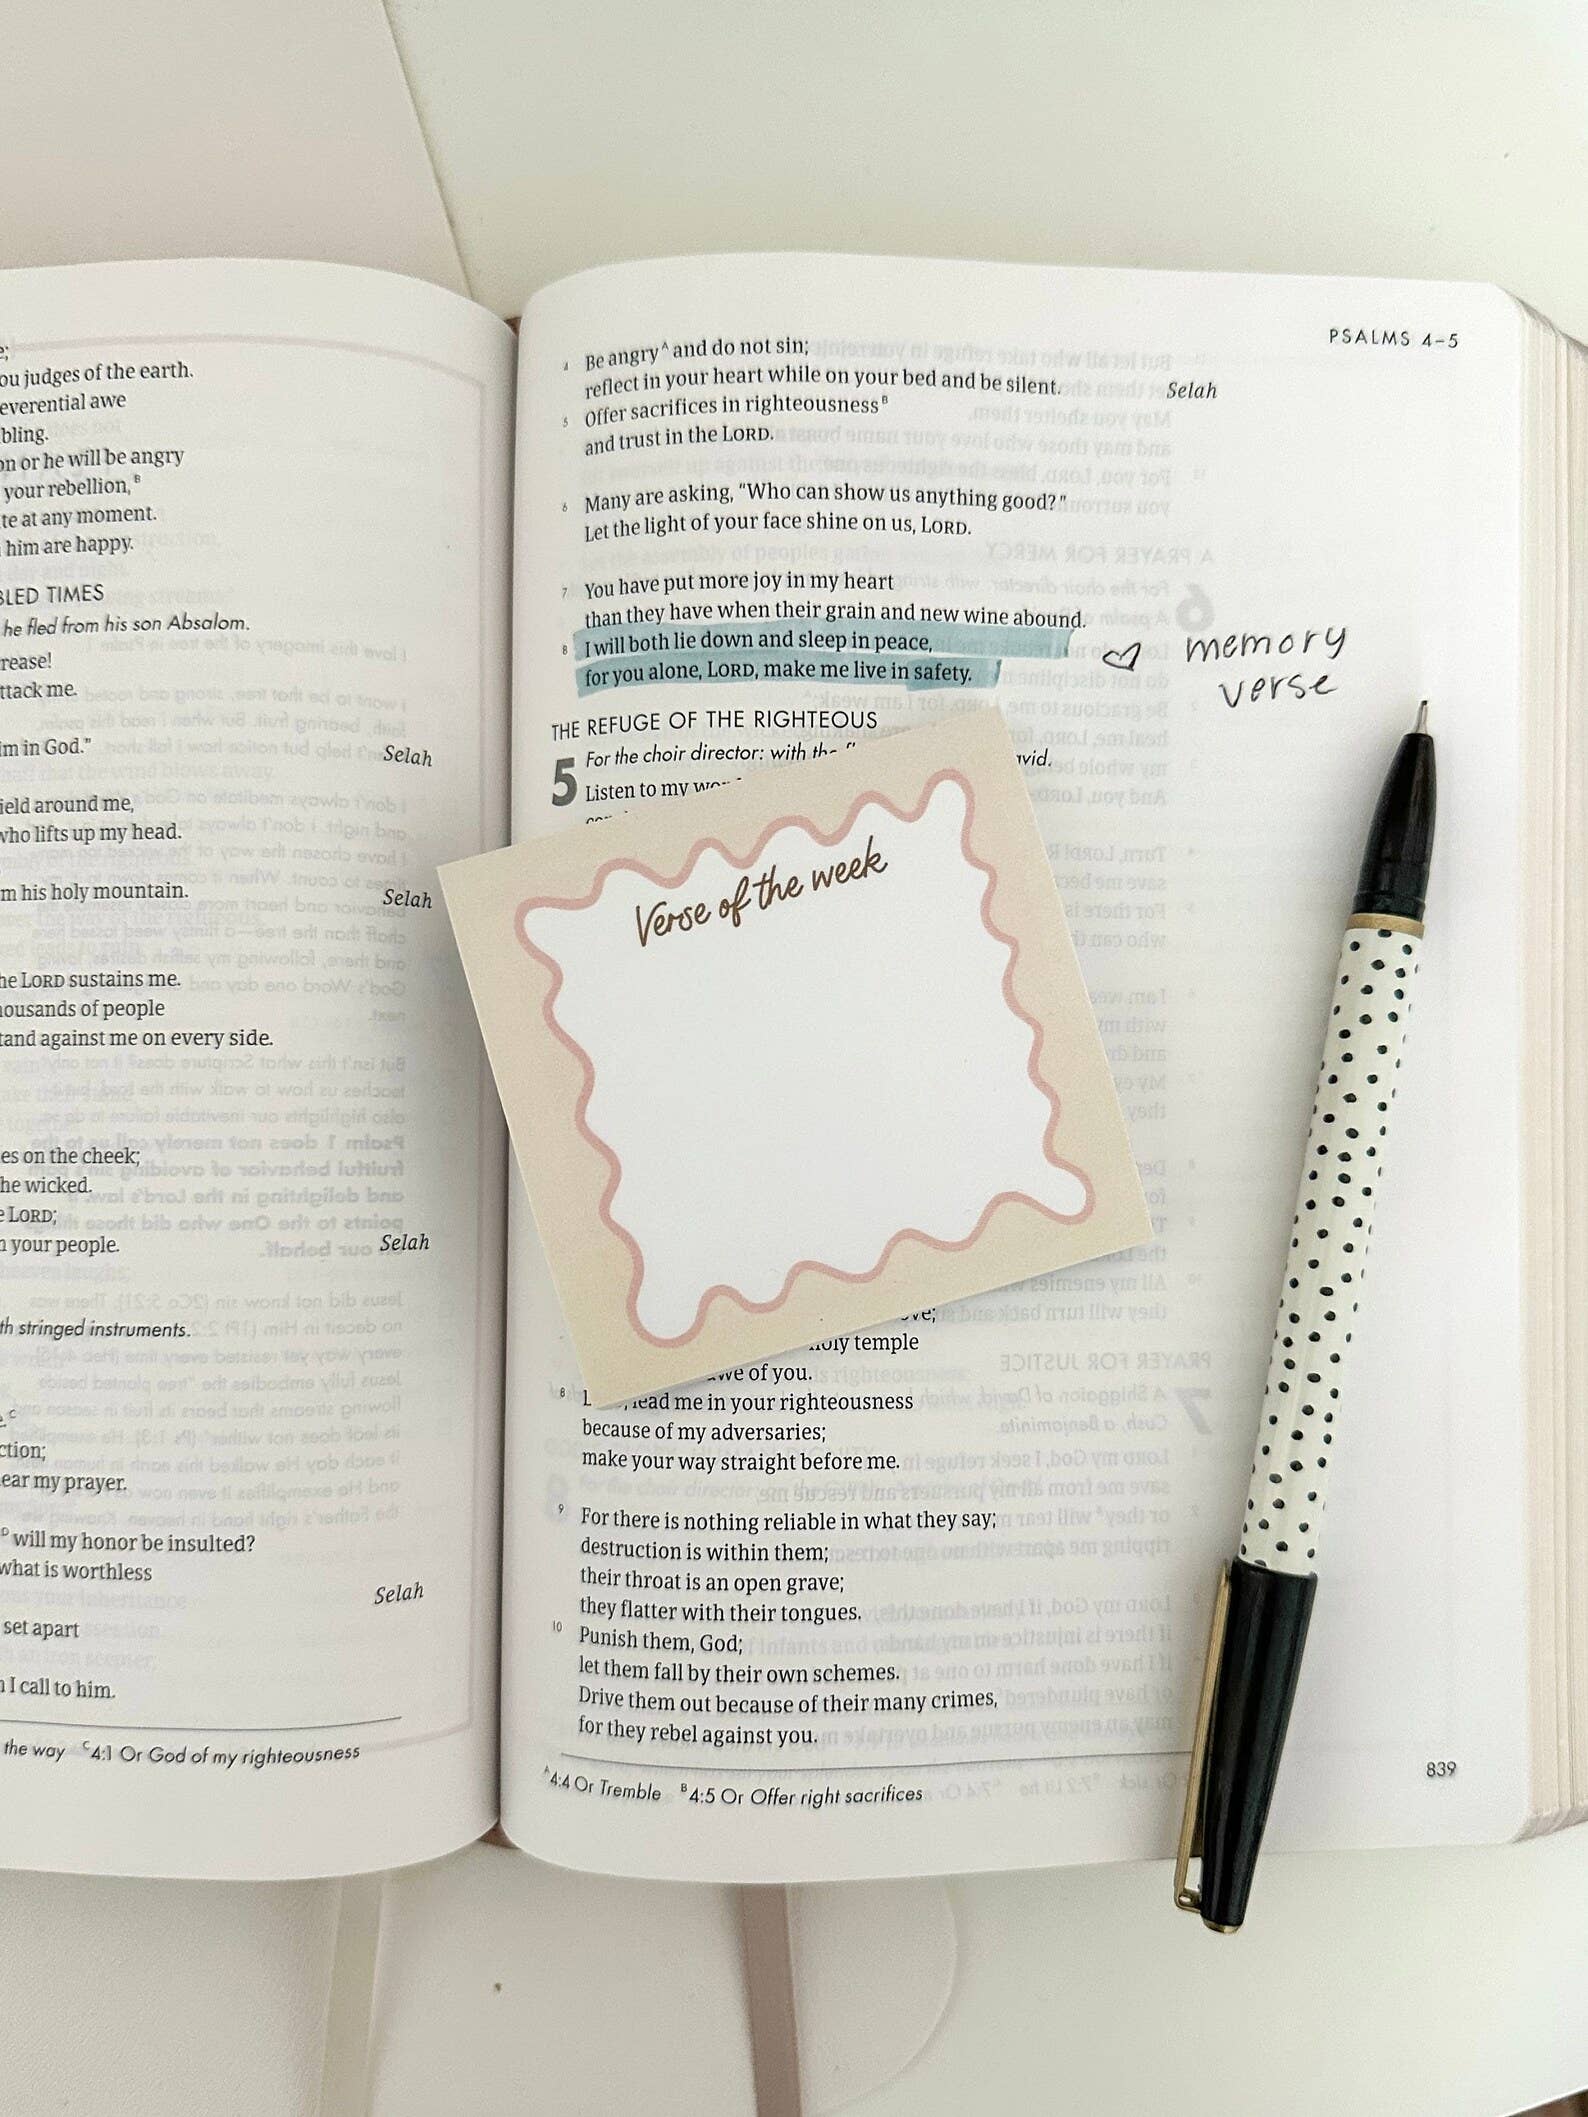 ou judges of the earth.
everential awe
bling.
on or he will be angry
your rebellion,ᴮ
te at any moment.
him are happy.
BLED TIMES
he fled from his son Absalom.
crease!
ttack me.
im in God."
Selah
ield around me,
who lifts up my head.
m his holy mountain.
Selah
he LORD sustains me.
housands of people
tand against me on every side.
es on the cheek;
he wicked.
e LORD;
n your people.
Selah
th stringed instruments.
ction;
ear my prayer.
ᴰ will my honor be insulted?
what is worthless
Selah
set apart
I call to him.
the way ᶜ4:1 Or God of my righteousness
PSALMS 4–5
4 Be angryᴬ and do not sin;
reflect in your heart while on your bed and be silent. Selah
5 Offer sacrifices in righteousnessᴮ
and trust in the LORD.
6 Many are asking, "Who can show us anything good?"
Let the light of your face shine on us, LORD.
7 You have put more joy in my heart
than they have when their grain and new wine abound.
8 I will both lie down and sleep in peace,
for you alone, LORD, make me live in safety.
♡ memory
verse
THE REFUGE OF THE RIGHTEOUS
5 For the choir director: with the
vid.
Listen to my
Verse of the week
ve;
holy temple
awe of you.
8 lead me in your righteousness
because of my adversaries;
make your way straight before me.
9 For there is nothing reliable in what they say;
destruction is within them;
their throat is an open grave;
they flatter with their tongues.
10 Punish them, God;
let them fall by their own schemes.
Drive them out because of their many crimes,
for they rebel against you.
ᴬ4:4 Or Tremble ᴮ4:5 Or Offer right sacrifices
839